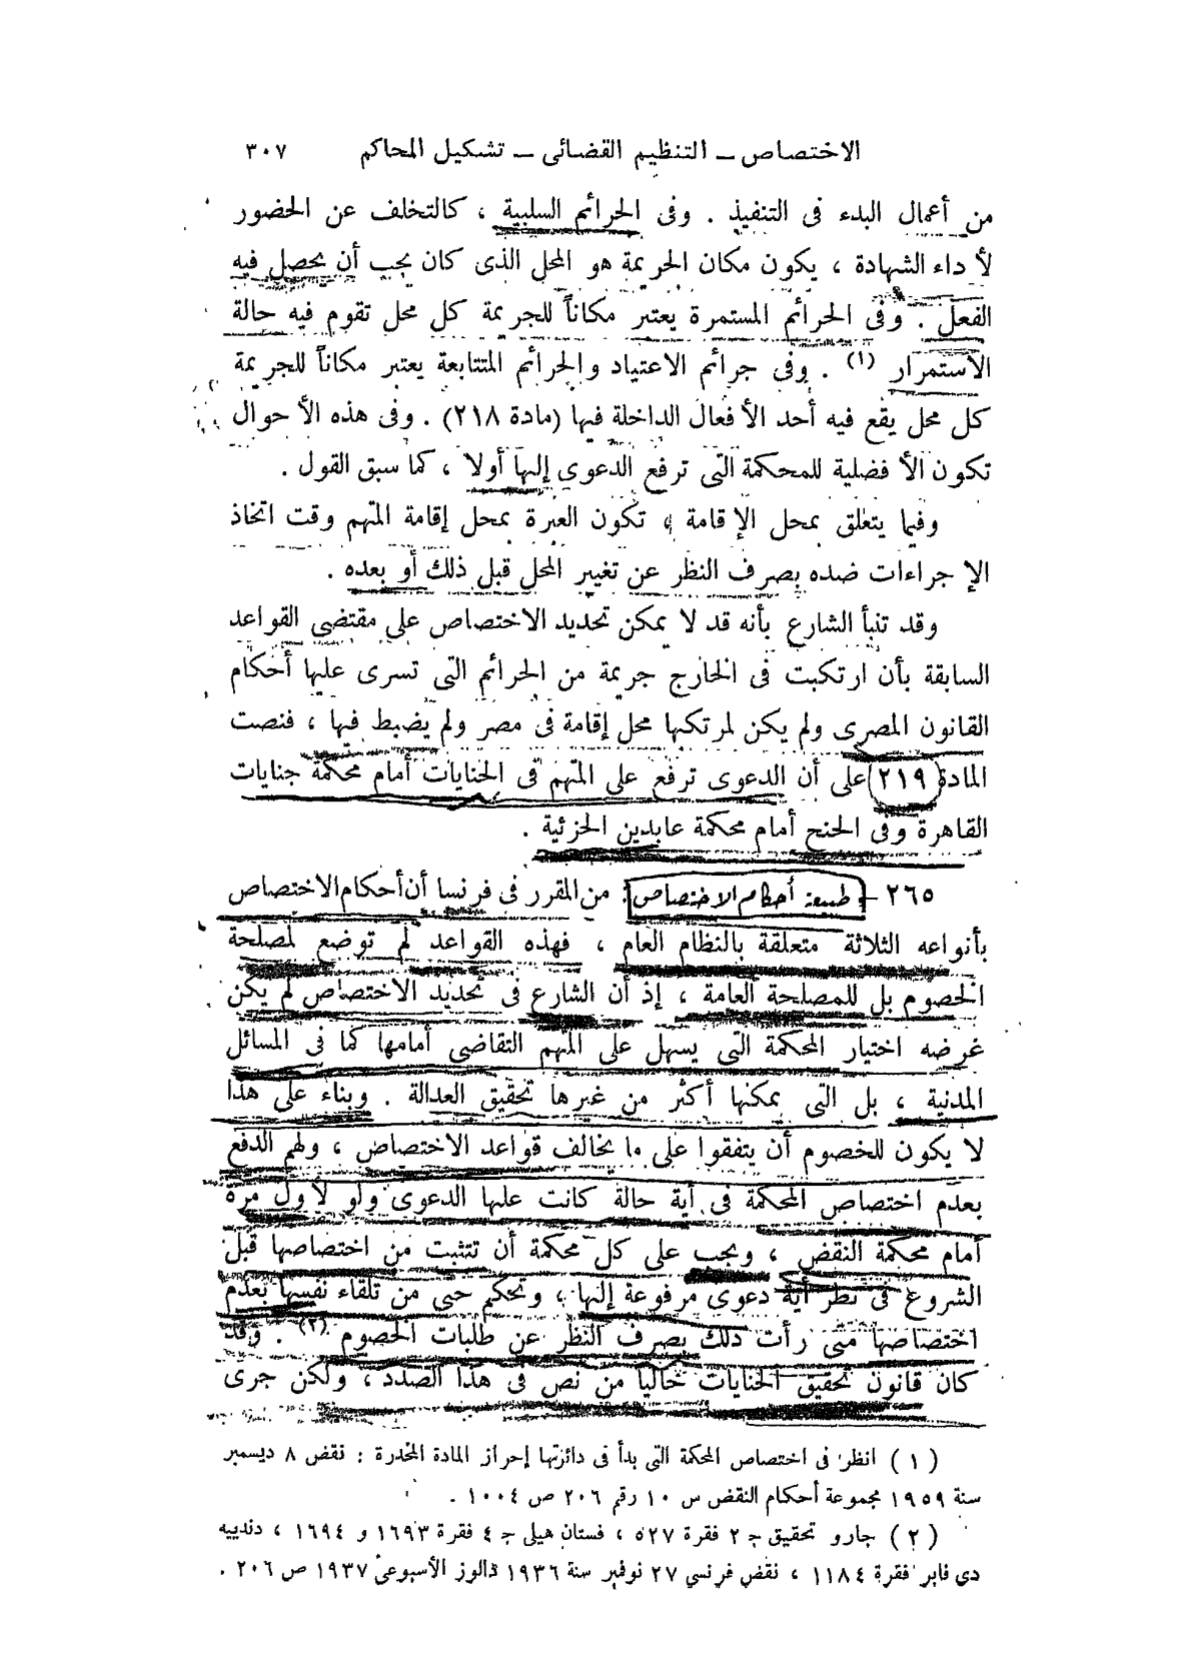 الاختصاص ــ التنظيم القضائى ــ تشكيل المحاكم ٣٠٧
من أعمال البدء فى التنفيذ . وفى الجرائم السلبية ، كالتخلف عن الحضور
لأداء الشهادة ، يكون مكان الجريمة هو المحل الذى كان يجب أن يحصل فيه
الفعل . وفى الجرائم المستمرة يعتبر مكاناً للجريمة كل محل تقوم فيه حالة
الاستمرار (١) . وفى جرائم الاعتياد والجرائم المتتابعة يعتبر مكاناً للجريمة
كل محل يقع فيه أحد الأفعال الداخلة فيها (مادة ٢١٨) . وفى هذه الأحوال
تكون الأفضلية للمحكمة التى ترفع الدعوى إليها أولا ، كما سبق القول .
وفيما يتعلق بمحل الإقامة ، تكون العبرة بمحل إقامة المتهم وقت اتخاذ
الإجراءات ضده بصرف النظر عن تغيير المحل قبل ذلك أو بعده .
وقد تنبأ الشارع بأنه قد لا يمكن تحديد الاختصاص على مقتضى القواعد
السابقة بأن ارتكبت فى الخارج جريمة من الجرائم التى تسرى عليها أحكام
القانون المصرى ولم يكن لمرتكبها محل إقامة فى مصر ولم يضبط فيها ، فنصت
المادة (٢١٩) على أن الدعوى ترفع على المتهم فى الجنايات أمام محكمة جنايات
القاهرة وفى الجنح أمام محكمة عابدين الجزئية .
٢٦٥ – طبيعة أحكام الاختصاص : من المقرر فى فرنسا أن أحكام الاختصاص
بأنواعه الثلاثة متعلقة بالنظام العام ، فهذه القواعد لم توضع لمصلحة
الخصوم بل للمصلحة العامة ، إذ أن الشارع فى تحديد الاختصاص لم يكن
غرضه اختيار المحكمة التى يسهل على المتهم التقاضى أمامها كما فى المسائل
المدنية ، بل التى يمكنها أكثر من غيرها تحقيق العدالة . وبناء على هذا
لا يكون للخصوم أن يتفقوا على ما يخالف قواعد الاختصاص ، ولهم الدفع
بعدم اختصاص المحكمة فى أية حالة كانت عليها الدعوى ولو لأول مرة
أمام محكمة النقض ، ويجب على كل محكمة أن تتثبت من اختصاصها قبل
الشروع فى نظر أية دعوى مرفوعة إليها ، وتحكم حتى من تلقاء نفسها بعدم
اختصاصها متى رأت ذلك بصرف النظر عن طلبات الخصوم (٢) . وقد
كان قانون تحقيق الجنايات خالياً من نص فى هذا الصدد ، ولكن جرى
(١) انظر فى اختصاص المحكمة التى بدأ فى دائرتها إحراز المادة المخدرة : نقض ٨ ديسمبر
سنة ١٩٥٩ مجموعة أحكام النقض س ١٠ رقم ٢٠٦ ص ١٠٠٤ .
(٢) جارو تحقيق ج ٢ فقرة ٥٢٧ ، فستان هيلى ج ٤ فقرة ١٦٩٣ و ١٦٩٤ ، دندييه
دى فابر فقرة ١١٨٤ ، نقض فرنسي ٢٧ نوفمبر سنة ١٩٣٦ دالوز الأسبوعى ١٩٣٧ ص ٢٠٦ .